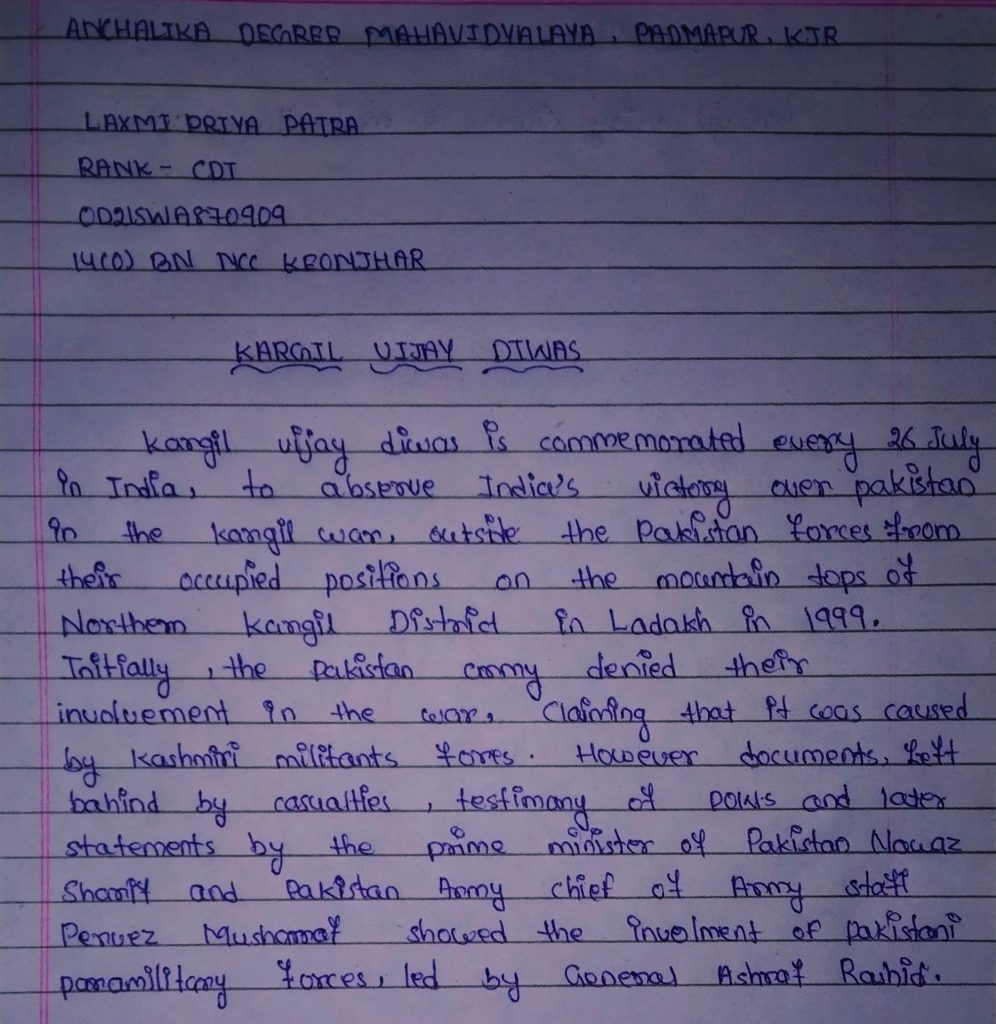 ANCHALIKA DEGREE MAHAVIDYALAYA, PADMAPUR, KJR
LAXMI PRIYA PATRA
RANK - CDT
OD21SWA870909
14(O) BN NCC KEONJHAR
KARGIL VIJAY DIWAS
Kargil vijay diwas is commemorated every 26 July
in India, to abserve India's victory over pakistan
in the kargil war, outstie the Pakistan forces from
their occupied positions on the mountain tops of
Northern Kargil District in Ladakh in 1999.
Initially, the Pakistan army denied their
involvement in the war, Claiming that it was caused
by Kashmiri militants forces. However documents, left
bahind by casualties, testimany of POWs and later
statements by the prime minister of Pakistan Nawaz
Sharift and Pakistan Army chief of Army staff
Pervez Musharraf showed the involment of pakistani
paramilitary forces, led by General Ashraf Rashid.